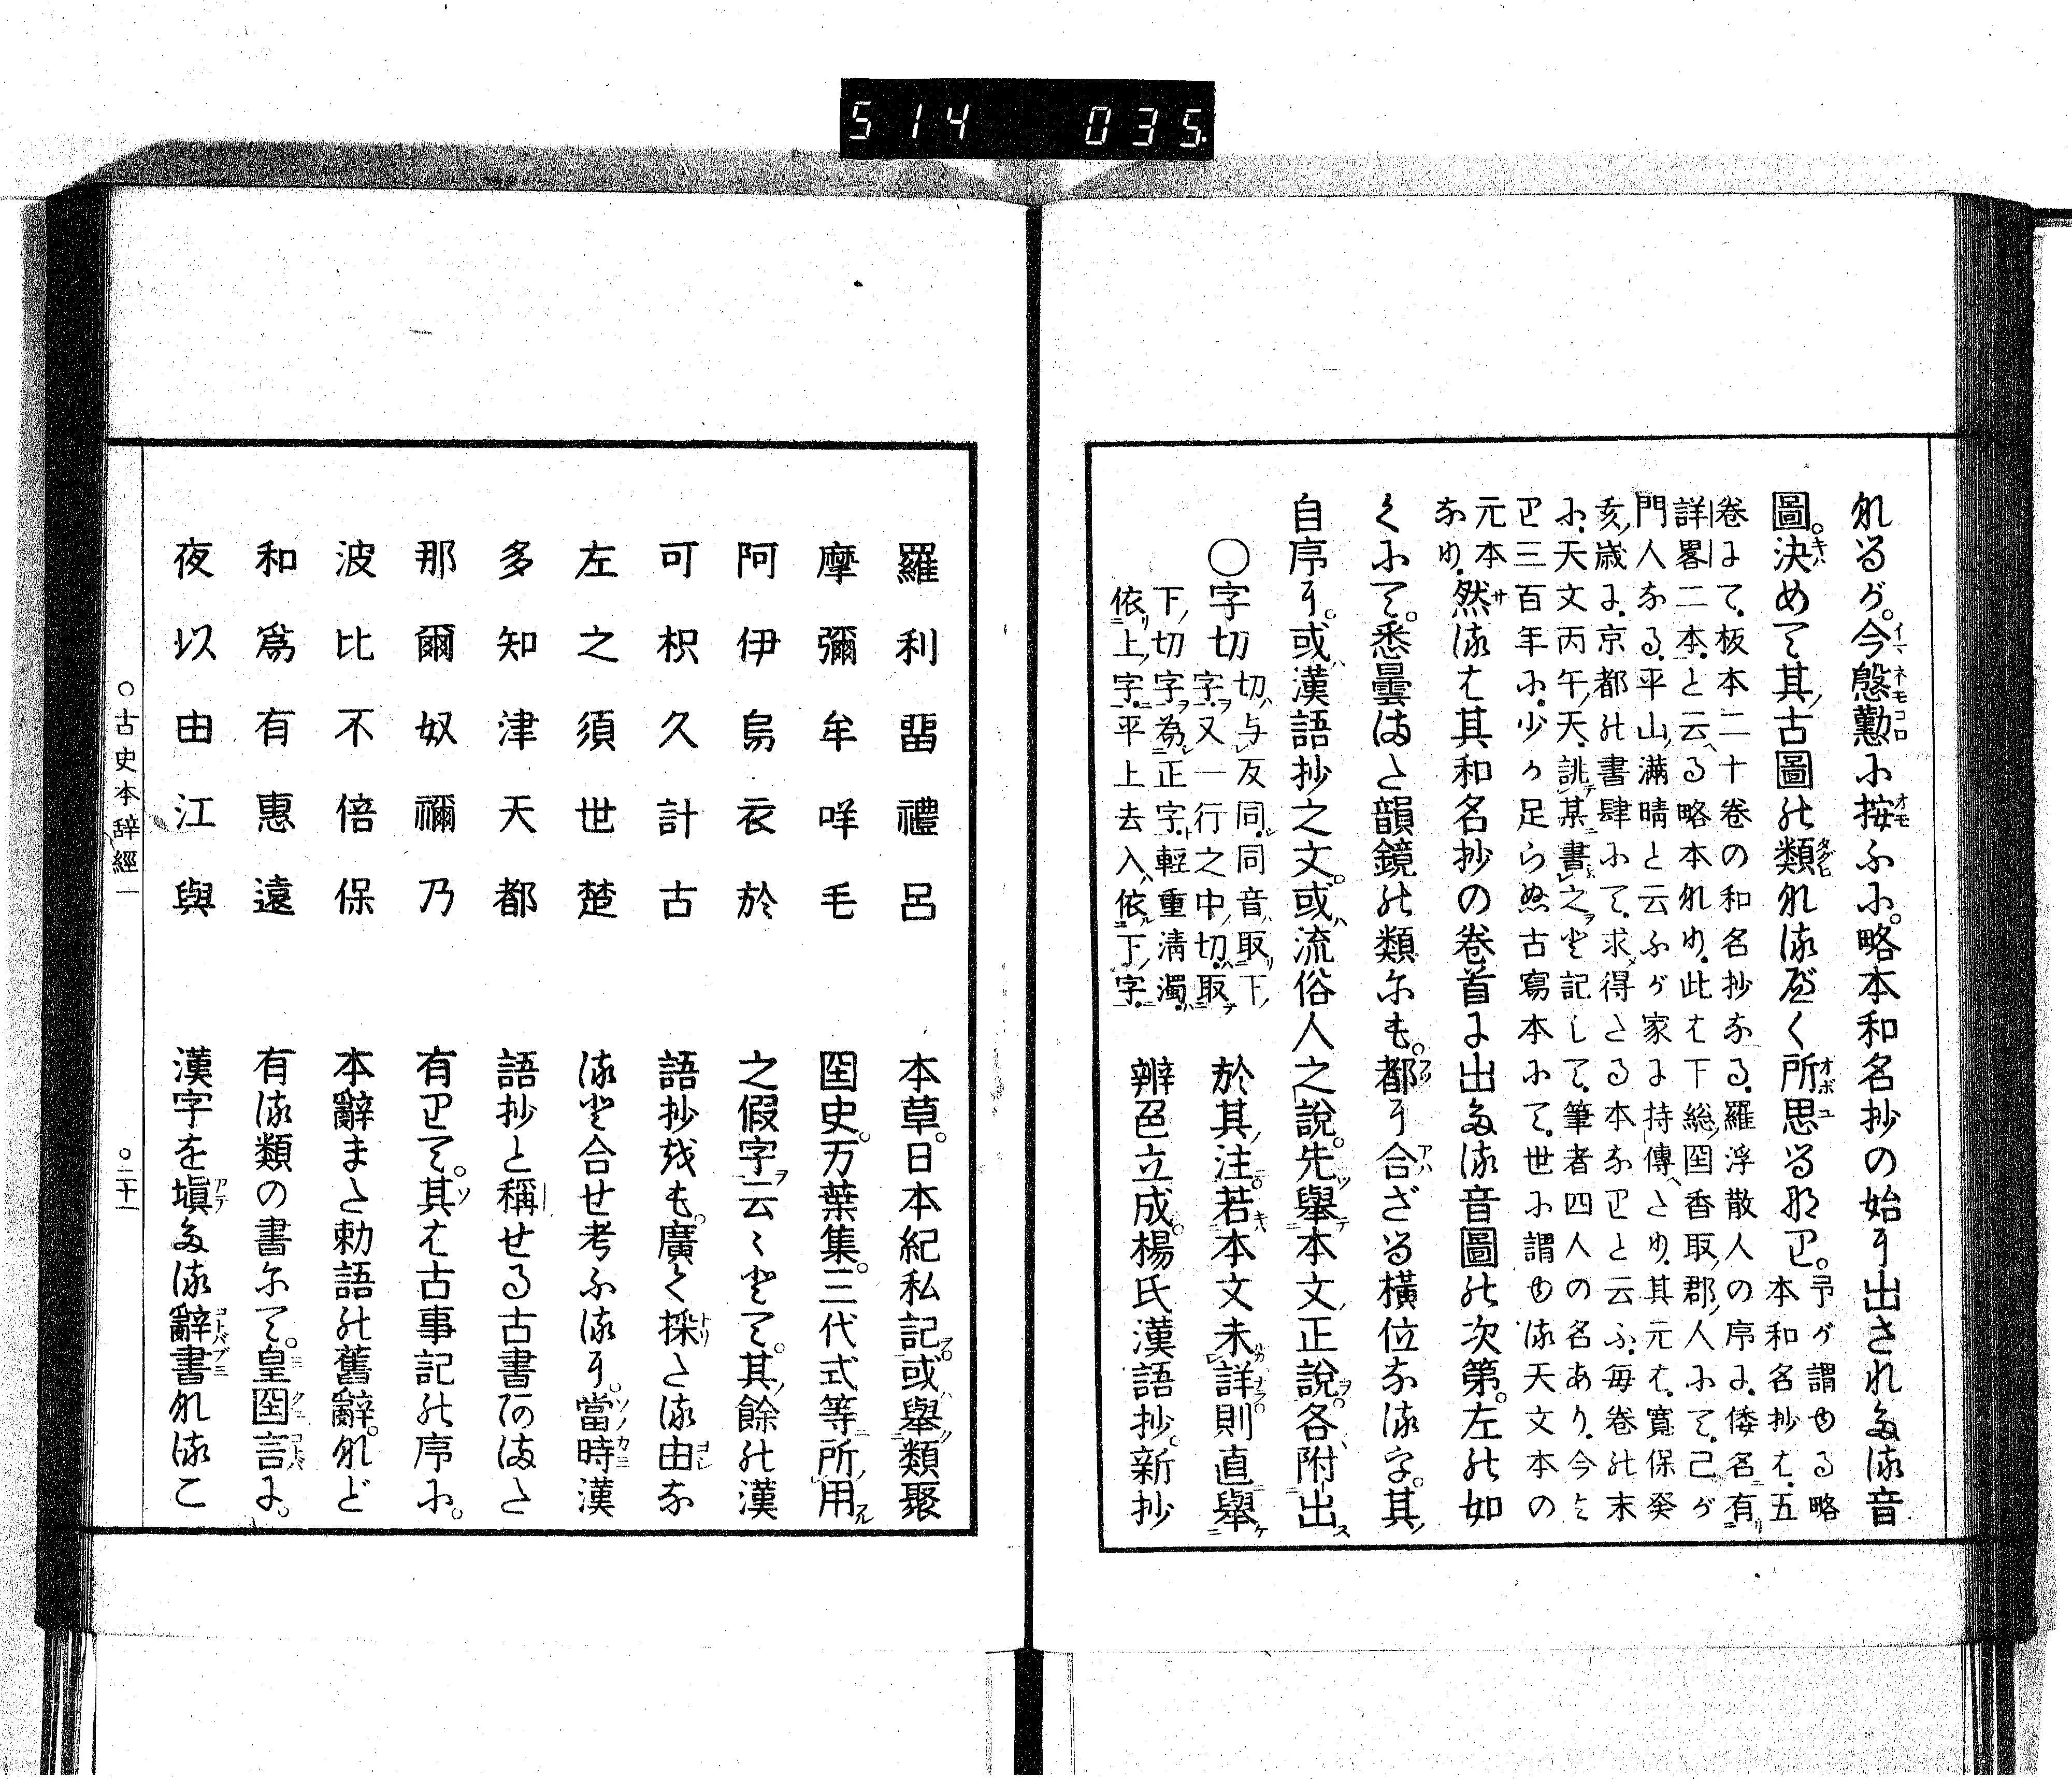 514 035
れるが。今慇懃に按ふに。略本和名抄の始に出されたる音
圖。決めて其古圖の類なるべく所思るなり。予が謂ゆる略本和名抄は、五
卷にて、板本二十卷の和名抄なる、羅浮散人の序に、倭名有
詳畧二本、と云へる略本なり、此は下総国香取郡人にて、己が
門人なる、平山滿晴と云ふが家に持傳へたり、其元は、寬保癸
亥歳に、京都の書肆にて、求得たる本なりと云ふ、每卷の末
に、天文丙午天、誂某書之と記して、筆者四人の名あり、今と
り三百年に、少か足らぬ古寫本にて、世に謂ゆる天文本の
元本なり、
然るは其和名抄の卷首に出たる音圖の次第。左の如
くにて。悉曇また韻鏡の類にも。都に合ざる橫位なる字。其
自序に。或漢語抄之文。或流俗人之說。先舉本文正說。各附出
於其注。若本文未詳則直舉
辨色立成。楊氏漢語抄。新抄
〇字切
切与反同、同音取下
字、又一行之中、切取
下切字為正字、輕重淸濁
依上字、平上去入依下字
羅利畱禮呂
摩彌牟咩毛
阿伊烏衣於
可枳久計古
左之須世楚
多知津天都
那爾奴禰乃
波比不倍保
和爲有惠遠
夜以由江與
本草。日本紀私記。或舉類聚
国史。万葉集。三代式等所用
之假字云々とて。其餘の漢
語抄をも。廣く採たる由な
ると合せ考ふるに。當時漢
語抄と稱せる古書あまた
有りて。其は古事記の序に。
本辭また勅語の舊辭。など
有る類の書にて。皇国言に。
漢字を塡たる辭書なるこ
〇古史本辞經一
〇二十一